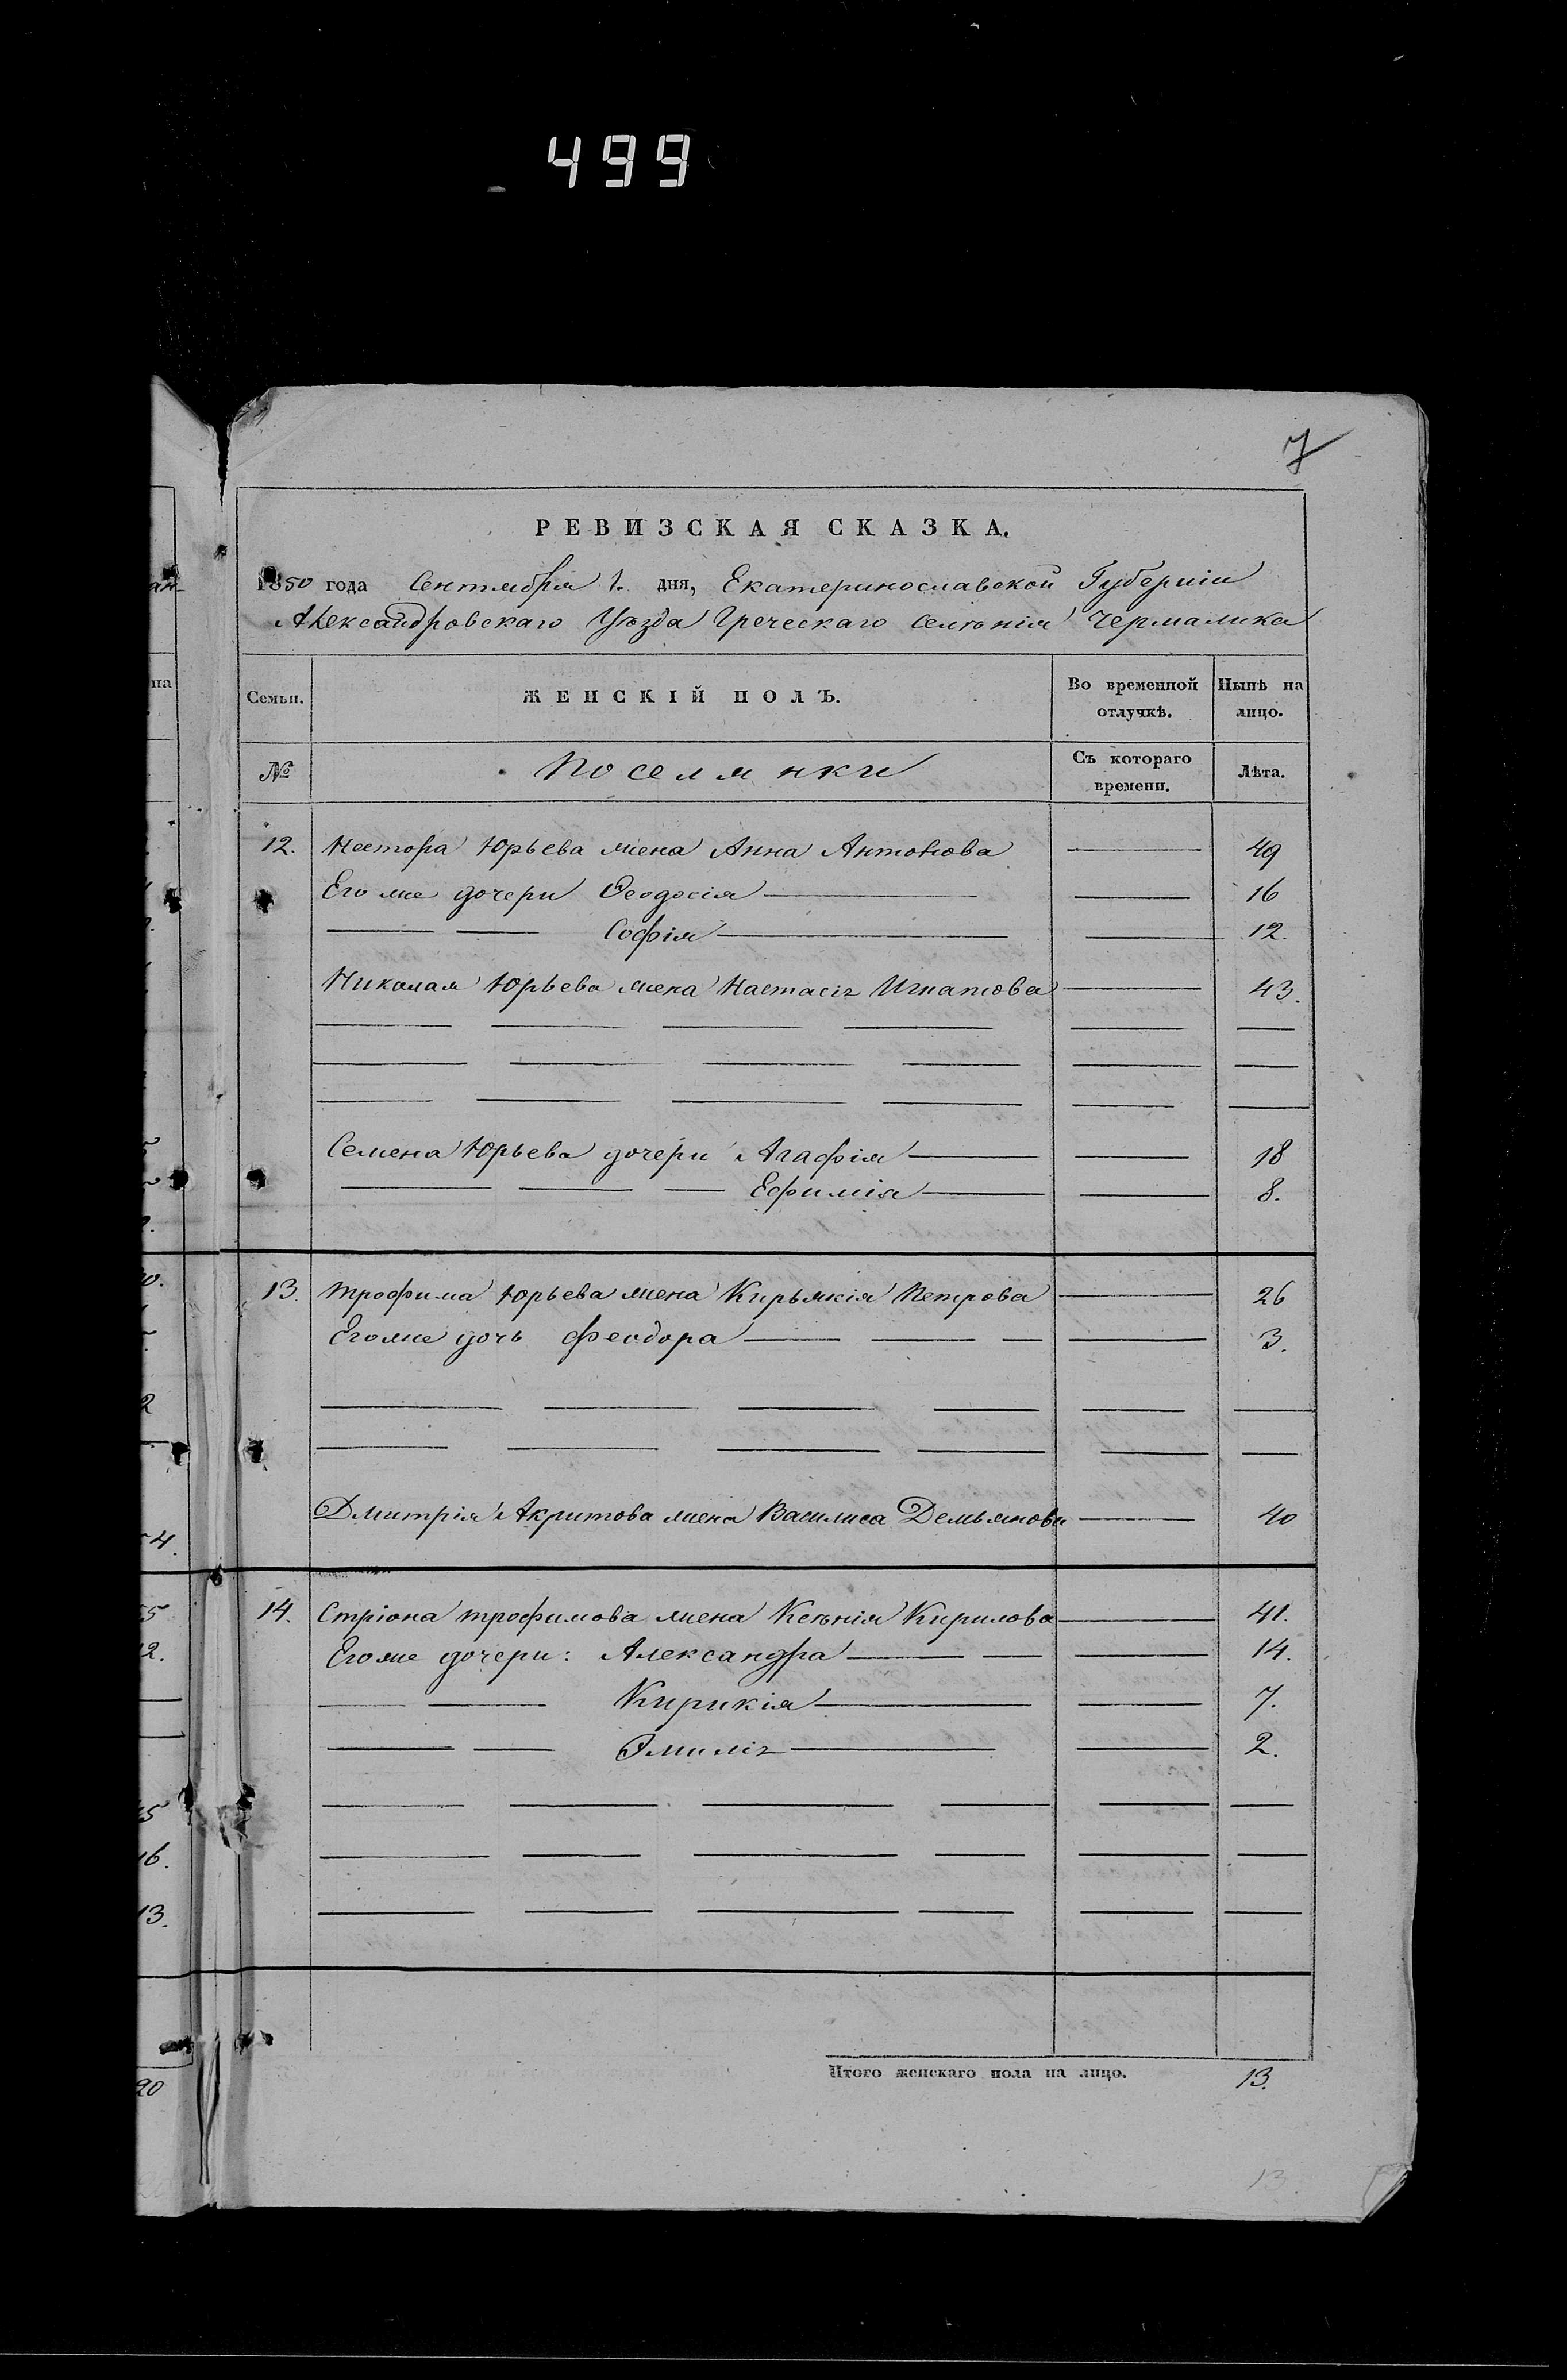 499
7
РЕВИЗСКАЯ СКАЗКА.
1850 года Сентября 1. дня, Екатеринославской Губерніи
Александровскаго Уѣзда Греческаго селѣнія Чермалика
Семьи. ЖЕНСКІЙ ПОЛЪ. Во временной отлучкѣ. Нынѣ на лицо.
№ Поселянки Съ котораго времени. Лѣта.
12. Нестора Юрьева жена Анна Антонова 49
Его же дочери Ѳеодосія 16
Софія 12.
Николая Юрьева жена Настасія Игнатова 43.
Семена Юрьева дочери Агафія 18
Ефимія 8.
13. Трофима Юрьева жена Кирьякія Петрова 26
Его же дочь Феодора 3.
Дмитрія Акритова жена Василиса Демьянова 40
14. Стріона Трофимова жена Ксѣнія Кирилова 41.
Его же дочери: Александра 14.
Кирикія 7.
Эмилія 2.
Итого женскаго пола на лицо. 13.
13.